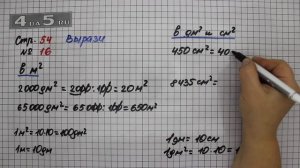 4 на 5.ru
Стр. 54 Вырази
№ 16
в м²
2000 дм² = 2000 : 100 = 20 м²
65000 дм² = 65000 : 100 = 650 м²
1 м² = 10·10 = 100 дм²
1 м = 10 дм
в дм² и см²
450 см² = 40
8435 см² =
1 дм = 10 см
1 дм² = 10·10 = 1